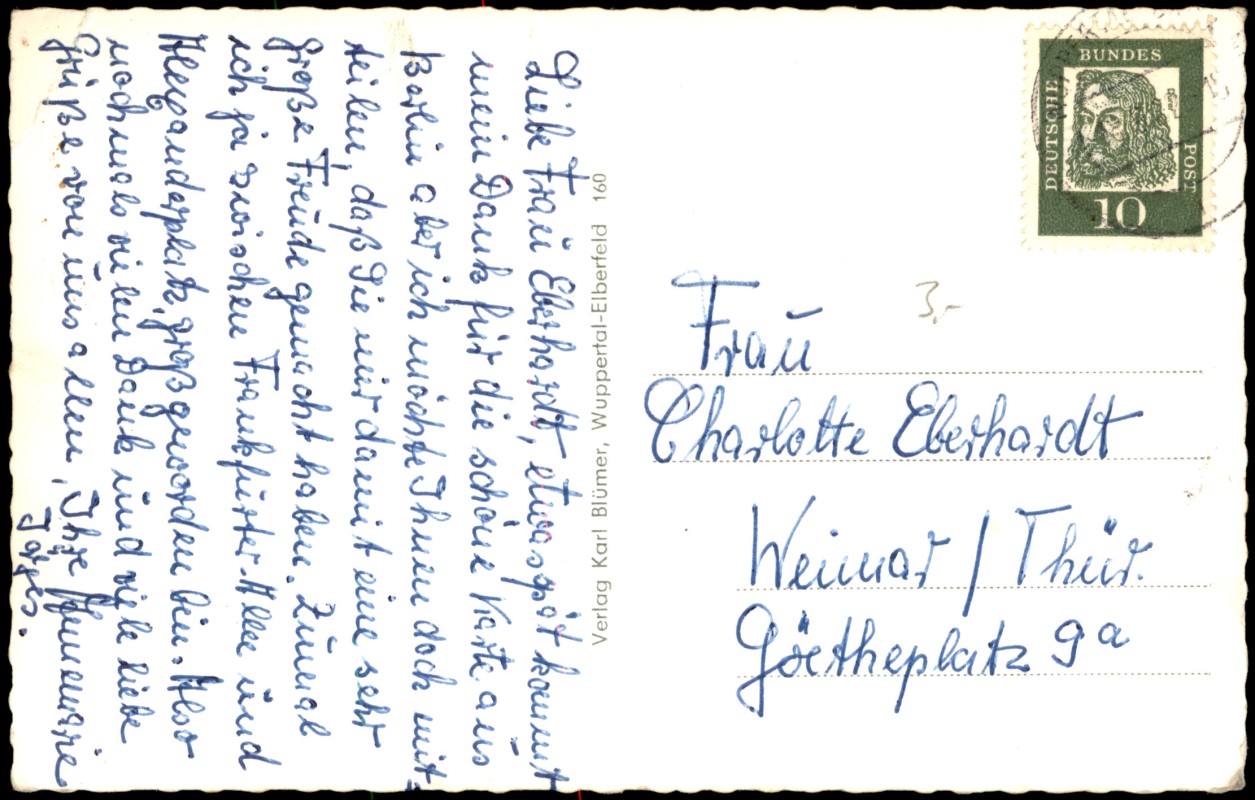 Liebe Frau Eberhardt, etwas spät kommt
mein Dank für die schöne Karte aus
Berlin aber ich möchte Ihnen doch mit-
teilen, daß Sie mir damit eine sehr
große Freude gemacht haben. Zumal
ich ja zwischen Frankfurter-Allee und
Alexanderplatz, groß geworden bin. Also
nochmals vielen Dank und viele liebe
Grüße von uns allen, Ihre Annemarie
Verlag Karl Blümer, Wuppertal-Elberfeld 160
DEUTSCHE
BUNDES
POST
Dürer
10
3,-
Frau
Charlotte Eberhardt
Weimar / Thür.
Göetheplatz 9a